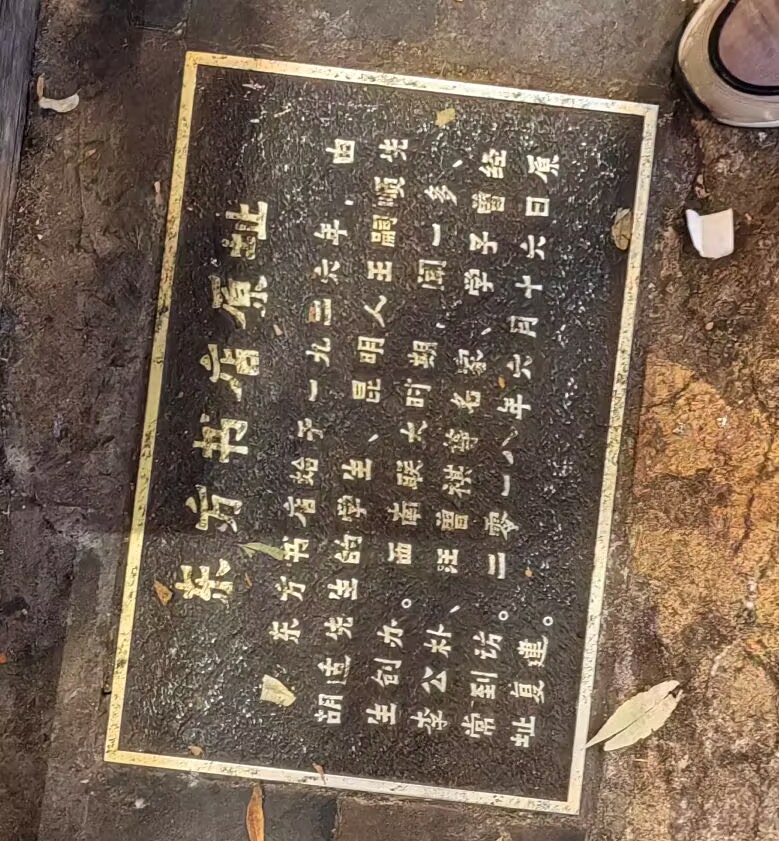 东方书店原址
东方书店始于一九三六年，由
胡适先生的学生、昆明人王嗣顺先
生创办。西南联大时期，闻一多、
李公朴、汪曾祺等名家、学子曾经
常到访。二零一八年六月十六日原
址复建。